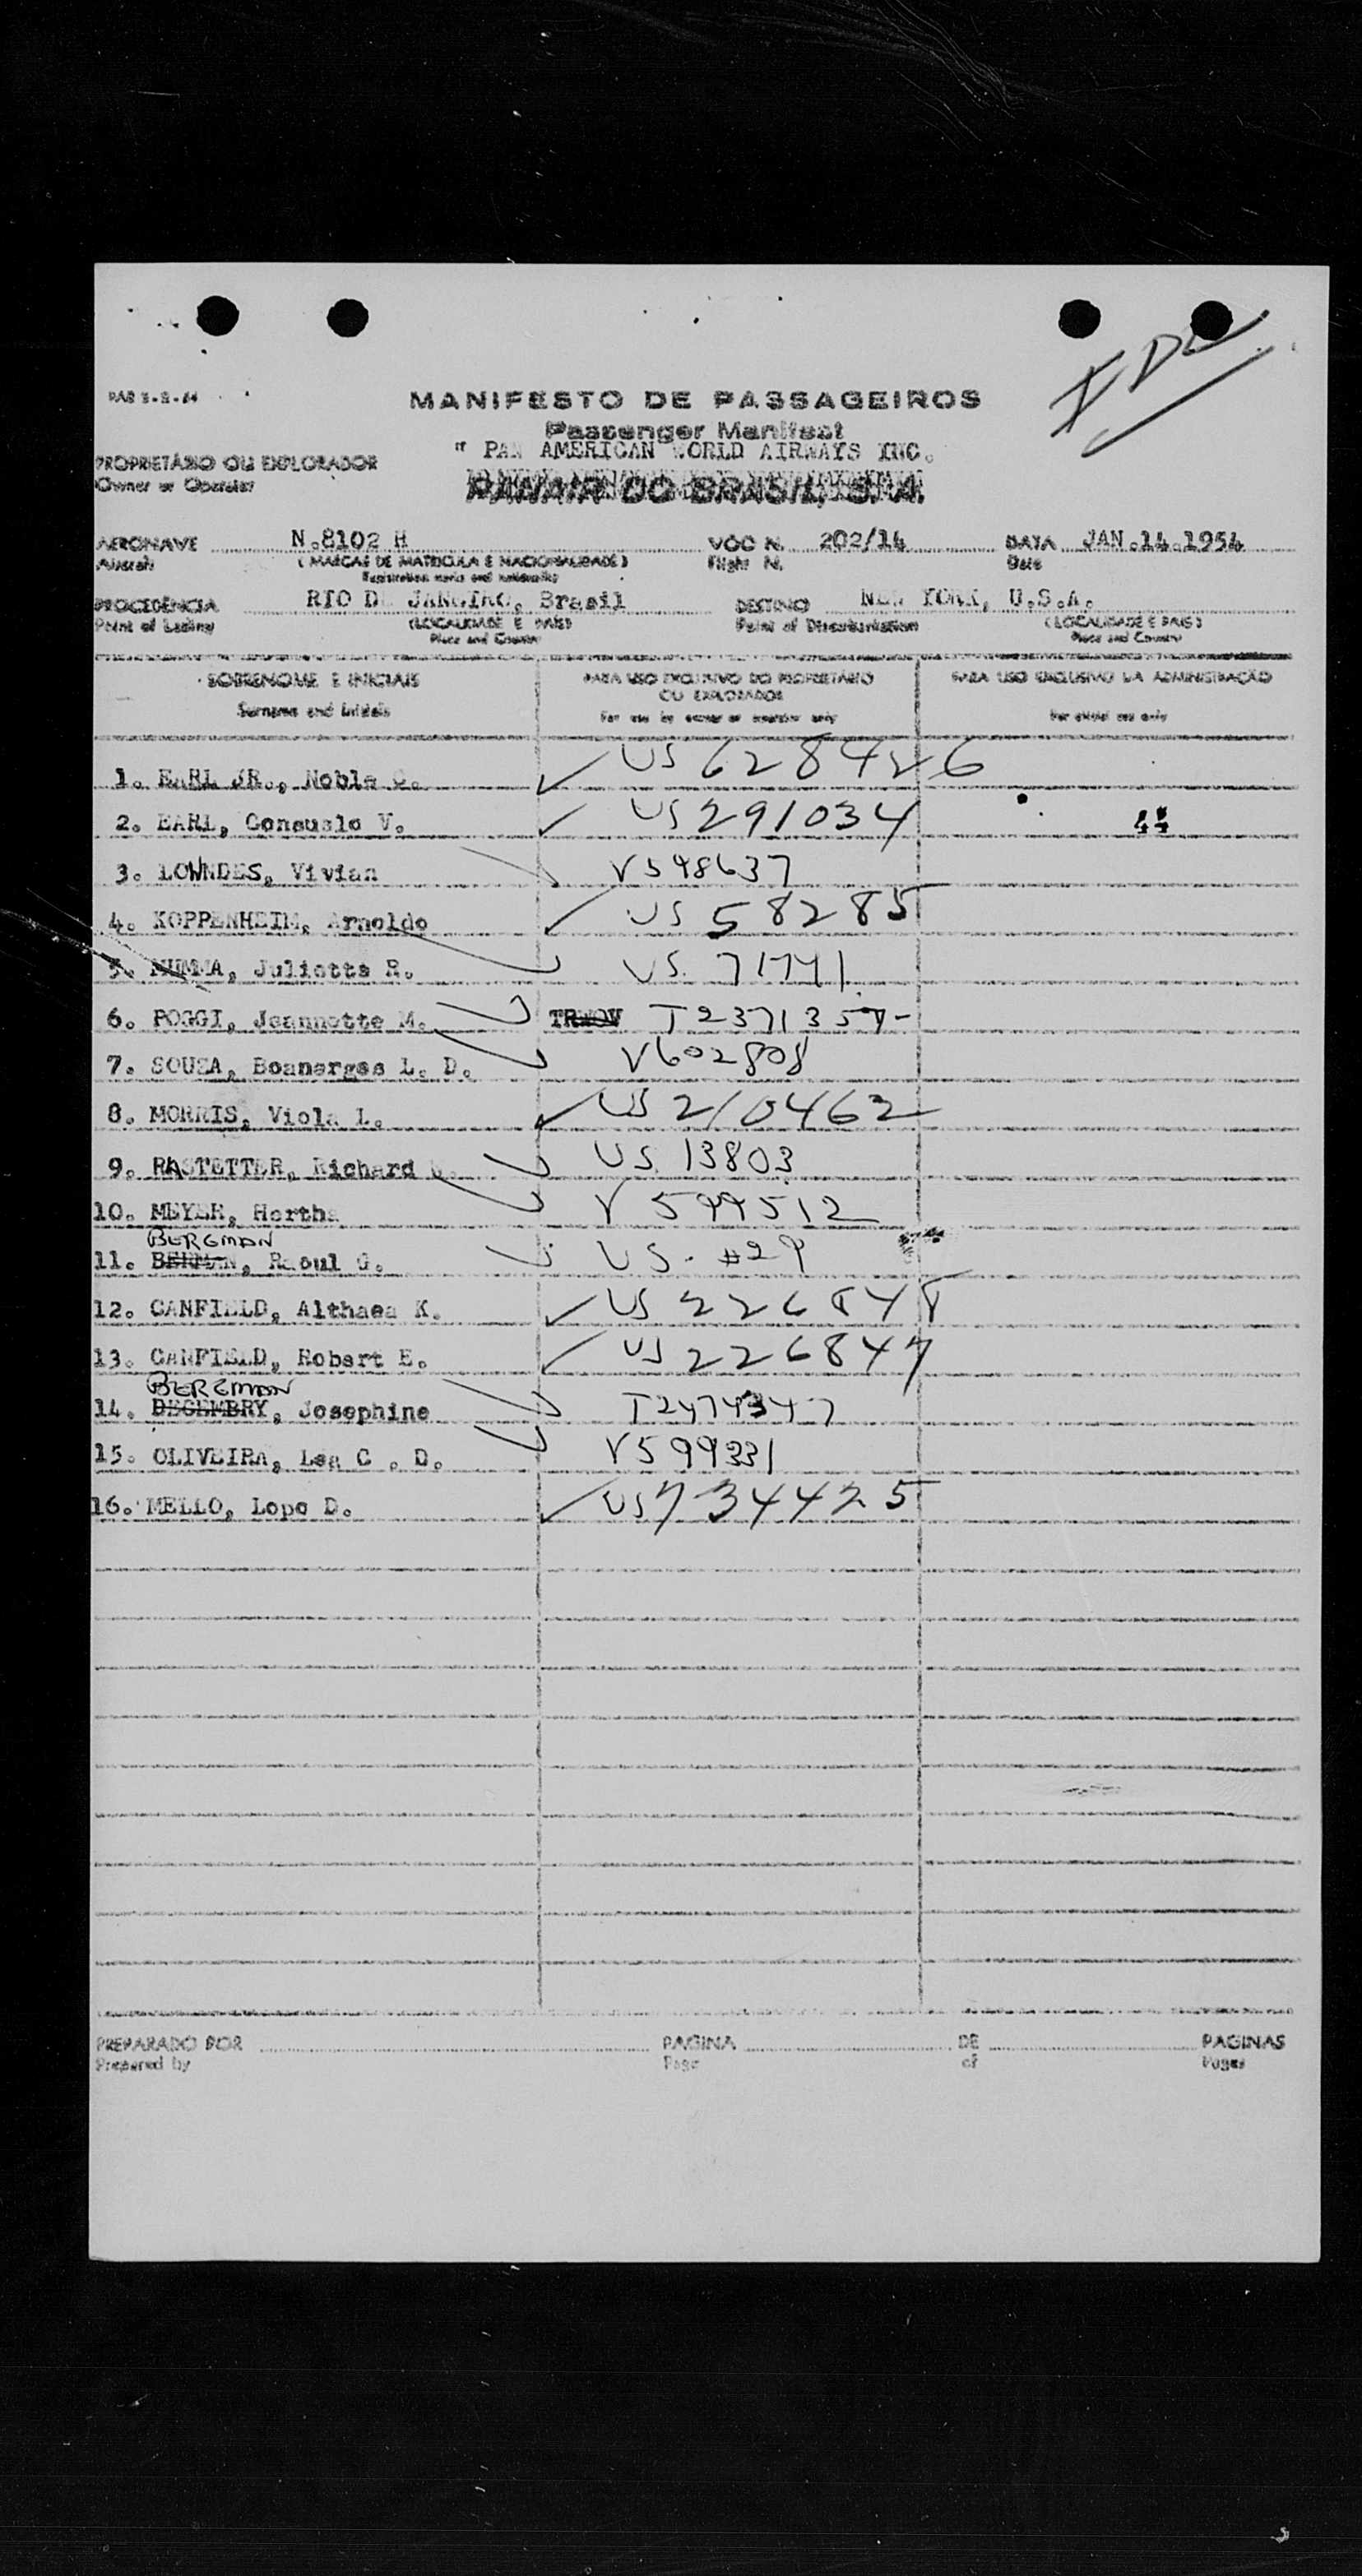 IDL
PAB 3-2-64
MANIFESTO DE PASSAGEIROS
Passenger Manifest
" PAN AMERICAN WORLD AIRWAYS INC.
PROPRIETÁRIO OU EXPLORADOR
Owner or Operator
PANAIR DO BRASIL, S. A.
AERONAVE N.8102 H VOO N. 202/14 DATA JAN.14.1954
Aircraft (MARCAS DE MATRICULA E NACIONALIDADE) Flight N. Date
Registration marks and nationality
PROCEDÊNCIA RIO DE JANEIRO, Brasil DESTINO NEW YORK, U.S.A.
Point of Lading (LOCALIDADE E PAÍS) Point of Disembarkation (LOCALIDADE E PAÍS)
Place and Country Place and Country
SOBRENOME E INICIAIS PARA USO EXCLUSIVO DO PROPRIETÁRIO PARA USO EXCLUSIVO DA ADMINISTRAÇÃO
OU EXPLORADOR
Surname and Initials For use by owner or operator only For official use only
1. EARL JR., Noble C. US 628426
2. EARL, Consuelo V. US 291034 44
3. LOWNDES, Vivian V598637
4. KOPPENHEIM, Arnoldo US 58285
5. MUMMA, Juliette R. US. 71741
6. POGGI, Jeannette M. T2371357-
7. SOUZA, Boanerges L. D. V602808
8. MORRIS, Viola L. US 210462
9. RASTETTER, Richard US. 13803
10. MEYER, Hertha V 599512
BERGMAN
11. BERMAN, Raoul G. US. #29
12. CANFIELD, Althaea K. US 226848
13. CANFIELD, Robert E. US 226847
BERGMAN
14. DECEMBRY, Josephine T2474347
15. OLIVEIRA, Lea C . D. V599331
16. MELLO, Lopo D. US 734425
PREPARADO POR PAGINA DE PAGINAS
Prepared by Page of Pages